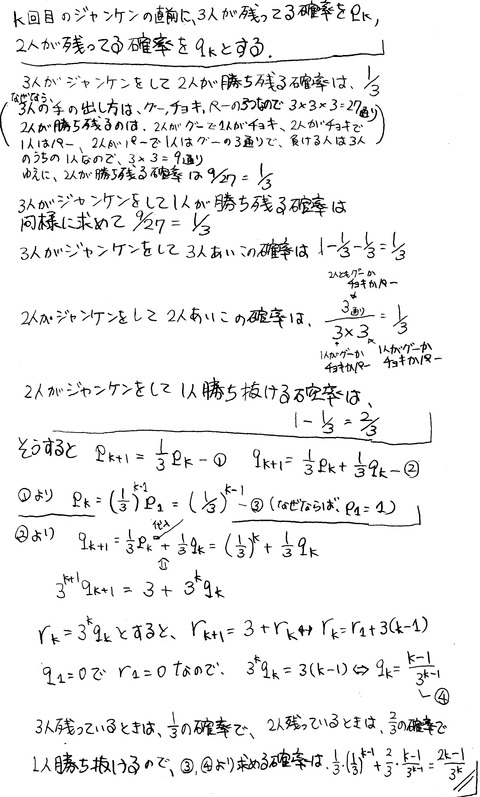 k回目のジャンケンの直前に、3人が残ってる確率をPk,
2人が残ってる確率をqkとする.
3人がジャンケンをして2人が勝ち残る確率は、1/3
なぜなら、
3人の手の出し方は、グー,チョキ,パーの3つなので 3×3×3=27通り
2人が勝ち残るのは、2人がグーで1人がチョキ、2人がチョキで
1人はパー、2人がパーで1人はグーの3通りで、負ける人は3人
のうちの1人なので、3×3=9通り
ゆえに、2人が勝ち残る確率は9/27=1/3
3人がジャンケンをして1人が勝ち残る確率は
同様に求めて 9/27=1/3
3人がジャンケンをして3人あいこの確率は 1-1/3-1/3=1/3
2人ともグーか
チョキかパー
2人がジャンケンをして2人あいこの確率は、3通り/3×3=1/3
1人がグーか
チョキかパー
1人がグーか
チョキかパー
2人がジャンケンをして1人勝ち抜ける確率は、
1-1/3=2/3
そうすると Pk+1=1/3Pk-① qk+1=1/3Pk+1/3qk-②
①より Pk=(1/3)^k-1 P1=(1/3)^k-1-③(なぜならば、P1=1)
②より qk+1=1/3Pk+1/3qk=(1/3)^k+1/3qk
代入
3^k+1 qk+1=3+3^k qk
rk=3^k qkとすると、rk+1=3+rk⇔rk=r1+3(k-1)
q1=0でr1=0なので、3^k qk=3(k-1)⇔qk=k-1/3^k-1
④
3人残っているときは、1/3の確率で、2人残っているときは、2/3の確率で
1人勝ち抜けるので、③,④より求める確率は、1/3・(1/3)^k-1+2/3・k-1/3^k-1=2k-1/3^k